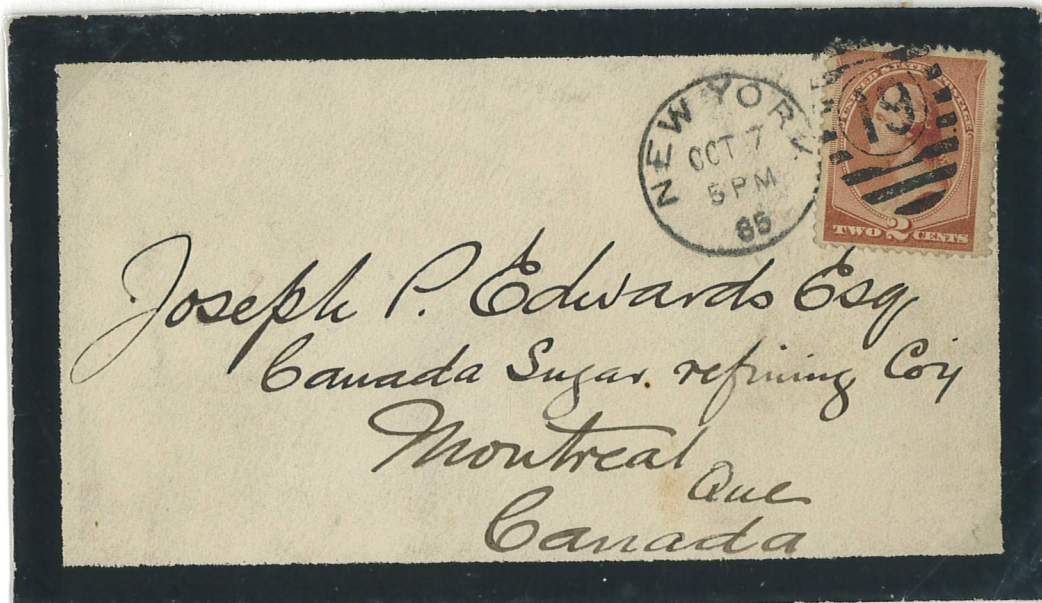 NEW YORK
OCT 7
5 PM
85
19
UNITED STATES POSTAGE
TWO 2 CENTS
Joseph P. Edwards Esq
Canada Sugar refining Coy
Montreal
Que
Canada